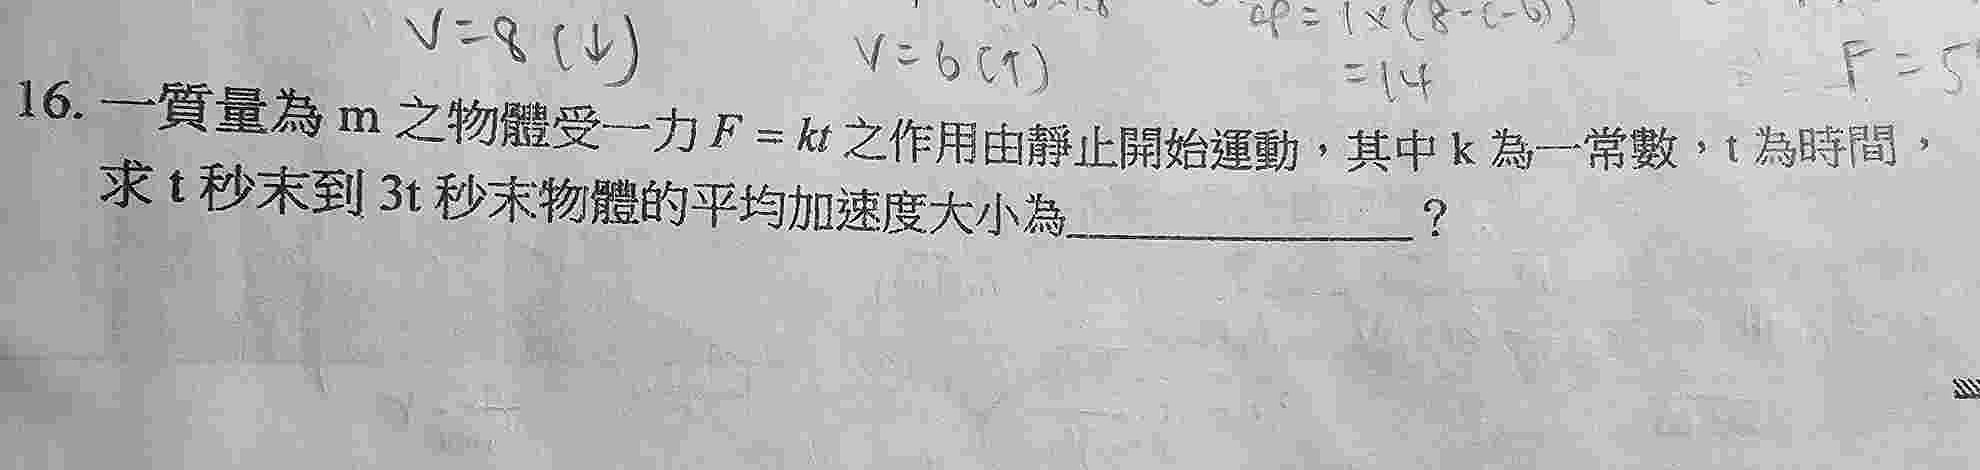 V=8 (↓)
V=6 (↑)
=1×(8-(-6))
=14
F=5
16. 一質量為 m 之物體受一力 F = kt 之作用由靜止開始運動，其中 k 為一常數，t 為時間，
求 t 秒末到 3t 秒末物體的平均加速度大小為＿＿＿＿＿＿？